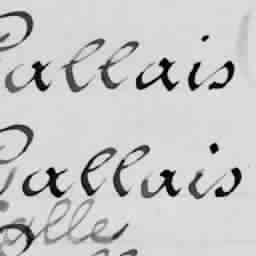 Gallais
Gallais
Galle